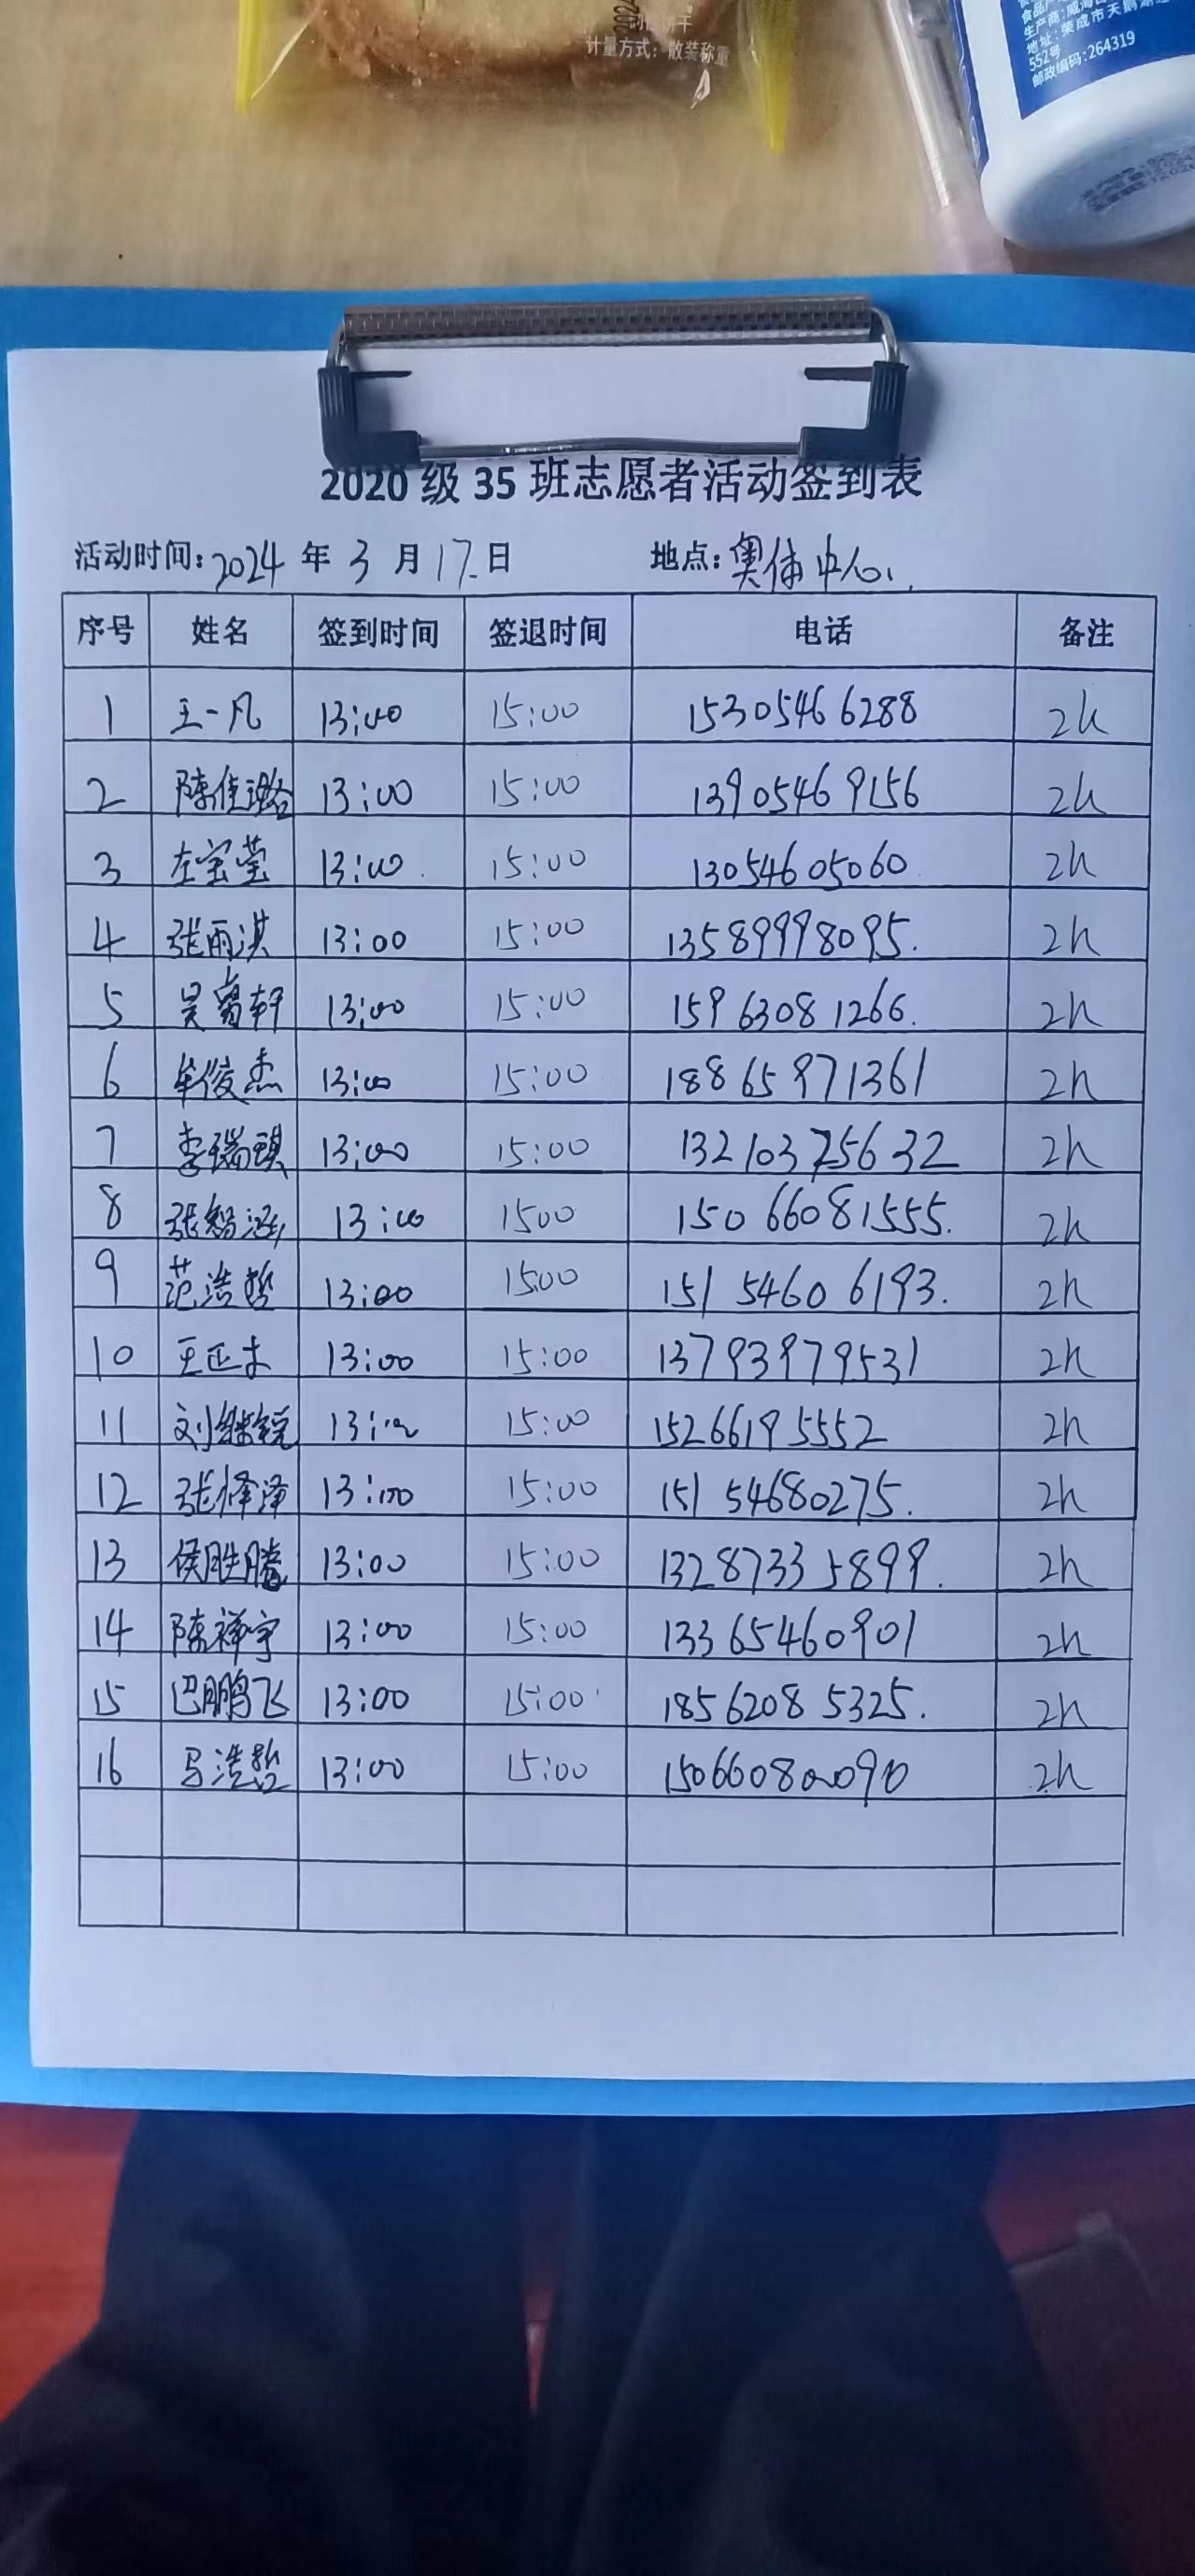 计量方式：散装称重
地址：荣成市天鹅湖
552号
邮政编码:264319
2020级35班志愿者活动签到表
活动时间：2024年3月17日 地点：奥体中心
序号 姓名 签到时间 签退时间 电话 备注
1 王一凡 13:00 15:00 15305466288 2h
2 陈佳璐 13:00 15:00 13905469156 2h
3 左宝莹 13:00 15:00 13054605060 2h
4 张雨淇 13:00 15:00 13589998095. 2h
5 吴富轩 13:00 15:00 15963081266. 2h
6 牟俊杰 13:00 15:00 18865971361 2h
7 李瑞琪 13:00 15:00 13210375632 2h
8 张智涵 13:00 1500 15066081555. 2h
9 范浩哲 13:00 1500 15154606193. 2h
10 王正木 13:00 15:00 13793979531 2h
11 刘继锐 13:00 15:00 15266195552 2h
12 张怿泽 13:00 15:00 15154680275. 2h
13 侯胜腾 13:00 15:00 13287335899. 2h
14 陈禅宇 13:00 15:00 13365460901 2h
15 巴鹏飞 13:00 15:00 18562085325. 2h
16 马浩哲 13:00 15:00 15066080090 2h